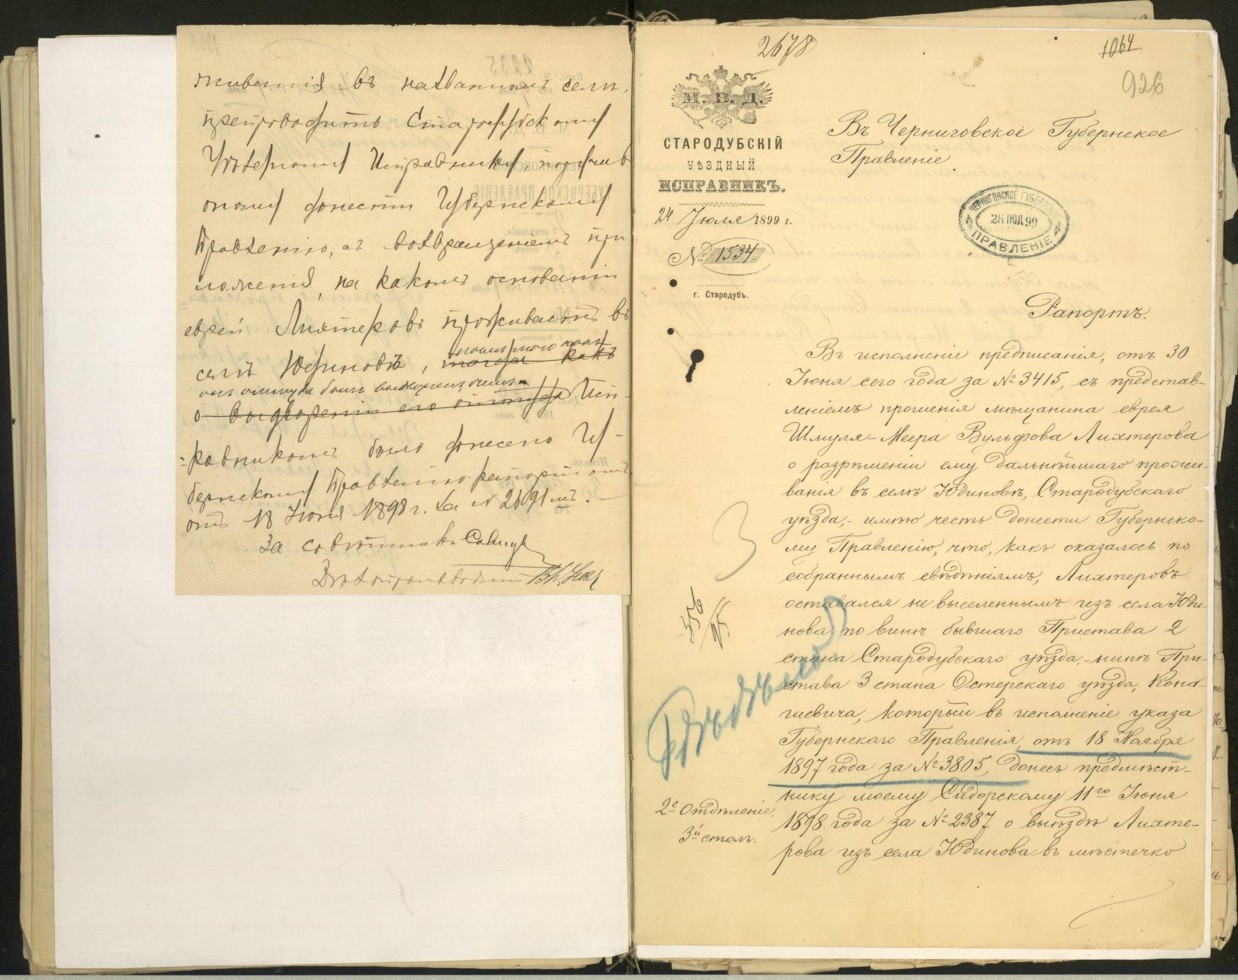 живанія въ названномъ селѣ,
препроводить Стародубскому
Уѣздному Исправнику
донести Губернскому
Правленію, съ возвращеніемъ при-
ложенія, на какомъ основаніи
еврей Лихтеровъ проживаетъ въ
селѣ Юдиновѣ, какъ
о выдвореніи его оттуда Исп-
равникомъ было донесено Гу-
бернскому Правленію рапортомъ
отъ 18 Іюня 1898 г. за № 2691
За совѣтника
2678
1064
926
М. В. Д.
СТАРОДУБСКІЙ
УѢЗДНЫЙ
ИСПРАВНИКЪ.
24 Іюля 1899 г.
№ 1534
г. Стародубъ.
Въ Черниговское Губернское
Правленіе
ЧЕРНИГОВСКОЕ ГУБЕРНСКОЕ
28 ІЮЛ 99
ПРАВЛЕНІЕ
Рапортъ.
Въ исполненіе предписанія, отъ 30
Іюня сего года за № 3415, съ представ-
леніемъ прошенія мѣщанина еврея
Шмуля-Меера Вульфова Лихтерова
о разрѣшеніи ему дальнѣйшаго прожи-
ванія въ селѣ Юдиновѣ, Стародубскаго
уѣзда,- имѣю честь донести Губернско-
му Правленію, что, какъ оказалось по
собраннымъ свѣдѣніямъ, Лихтеровъ
оставался не выселеннымъ изъ села Юди-
нова по винѣ бывшаго Пристава 2
стана Стародубскаго уѣзда,-нынѣ При-
става 3 стана Остерскаго уѣзда,
который въ исполненіе указа
Губернскаго Правленія, отъ 18 Ноября
1897 года за № 3805, донесъ предмѣст-
нику моему Сидорскому 11го Іюня
1898 года за № 2387 о выѣздѣ Лихте-
рова изъ села Юдинова въ мѣстечко
2е Отдѣленіе,
3й столъ.